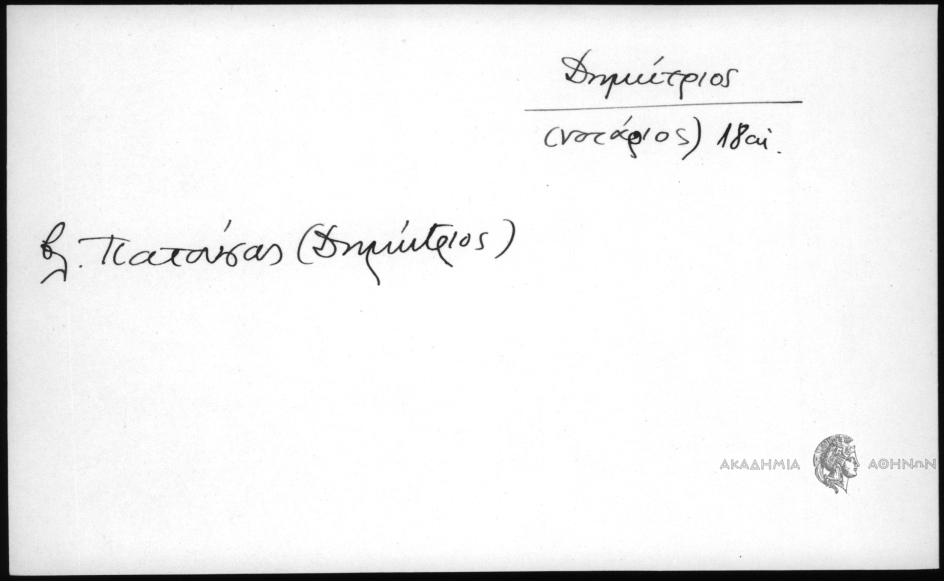 Δημήτριος
(νοτάριος) 18 αἰ.
βλ. Πατούσας (Δημήτριος)
ΑΚΑΔΗΜΙΑ ΑΘΗΝΩΝ